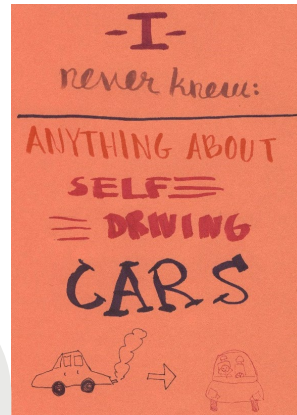 -I-
never knew:
ANYTHING ABOUT
SELF
DRIVING
CARS